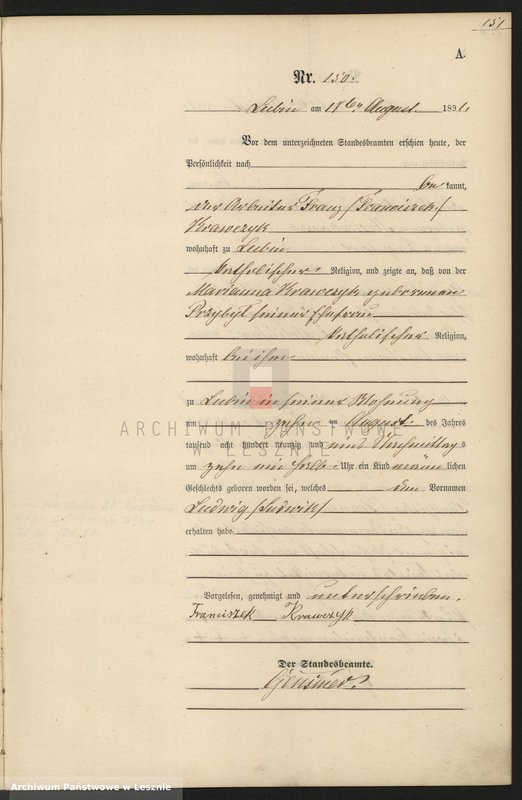 151
A.
Nr. 150.
Lubin am 17ten August 1891.
Vor dem unterzeichneten Standesbeamten erschien heute, der
Persönlichkeit nach
be kannt,
der Arbeiter Franz /Franciszek/
Krawczyk
wohnhaft zu Lubin
katholischer Religion, und zeigte an, daß von der
Marianna Krawczyk geborenen
Przybyl seiner Ehefrau
katholischer Religion,
wohnhaft bei ihm
zu Lubin in seiner Wohnung
am zehn ten August des Jahres
tausend acht hundert neunzig und eins Nachmittag s
um zehn ein halb Uhr ein Kind männ lichen
Geschlechts geboren worden sei, welches den Vornamen
Ludwig /Ludwik/
erhalten habe
Vorgelesen, genehmigt und unterschrieben.
Franciszek Krawczyk
Der Standesbeamte.
ARCHIWUM PAŃSTWOWE
W LESZNIE
Archiwum Państwowe w Lesznie